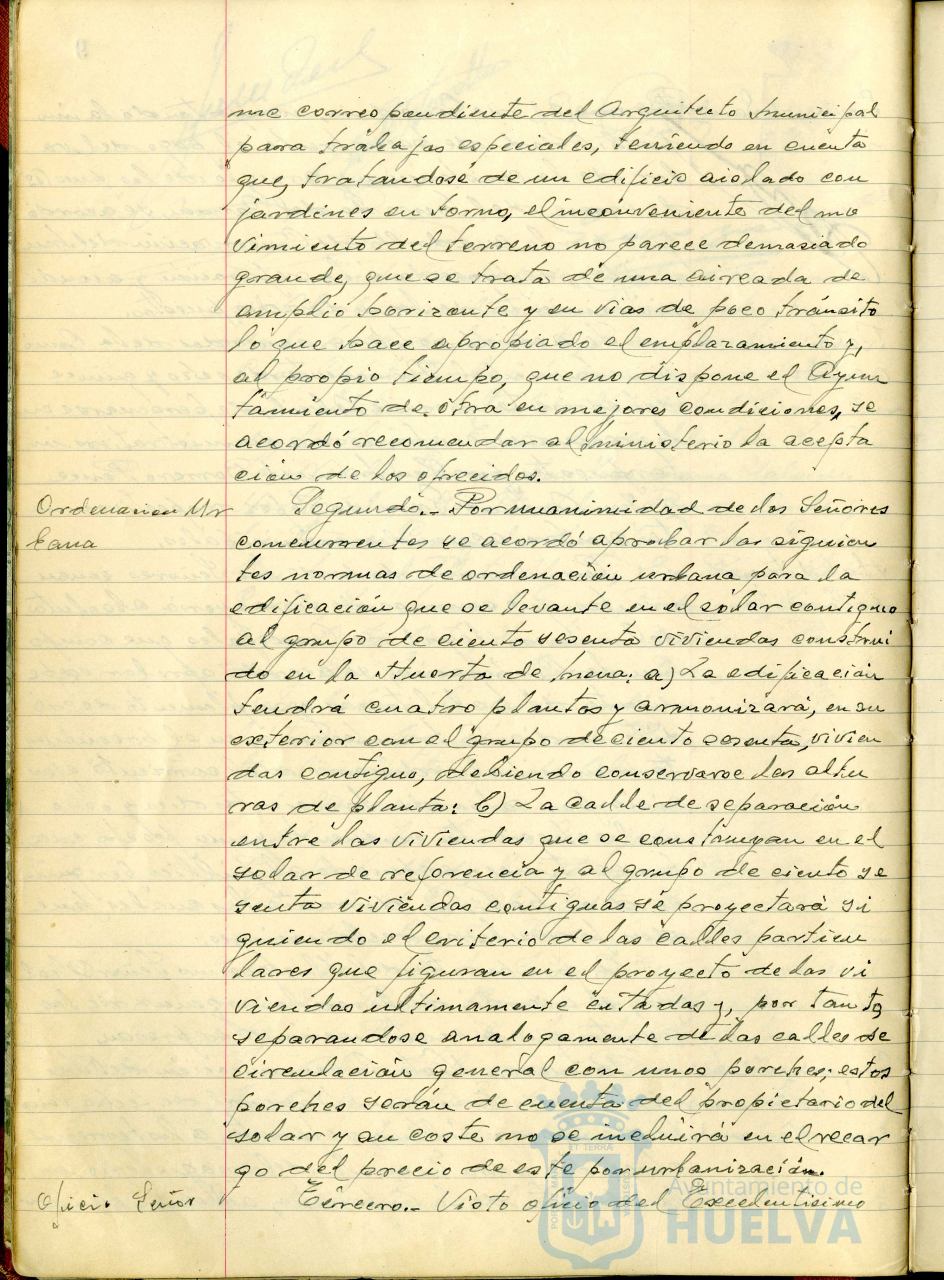 me correspondiente del Arquitecto Municipal
para trabajos especiales, teniendo en cuenta
que, tratandose de un edificio aislado con
jardines en torno, el inconveniente del mo
vimiento del terreno no parece demasiado
grande, que se trata de una aireada de
amplio horizonte y en vias de poco tránsito
lo que hace apropiado el emplazamiento y,
al propio tiempo, que no dispone el Ayun
tamiento de otra en mejores condiciones, se
acordó recomendar al Ministerio la acepta
ción de los ofrecidos.
Ordenacion Ur
bana
Segundo.- Por unanimidad de los Señores
concurrentes se acordó aprobar las siguien
tes normas de ordenación urbana para la
edificación que se levante en el solar contiguo
al grupo de ciento sesenta viviendas construi
do en la Huerta de Mena: a) La edificación
tendrá cuatro plantas y armonizará, en su
exterior con el grupo de ciento sesenta vivien
das contiguo, debiendo conservarse las altu
ras de planta: b) La calle de separación
entre las viviendas que se construyan en el
solar de referencia y al grupo de ciento se
senta viviendas contiguas se proyectará si
guiendo el criterio de las calles particu
lares que figuran en el proyecto de las vi
viendas ultimamente citadas y, por tanto,
separandose analogamente de las calles de
circulación general con unos porches; estos
porches serán de cuenta del propietario del
solar y su coste no se incluirá en el recar
go del precio de este por urbanización.
Oficio Señor
Tercero.- Visto oficio del Excelentisimo
Ayuntamiento de
HUELVA